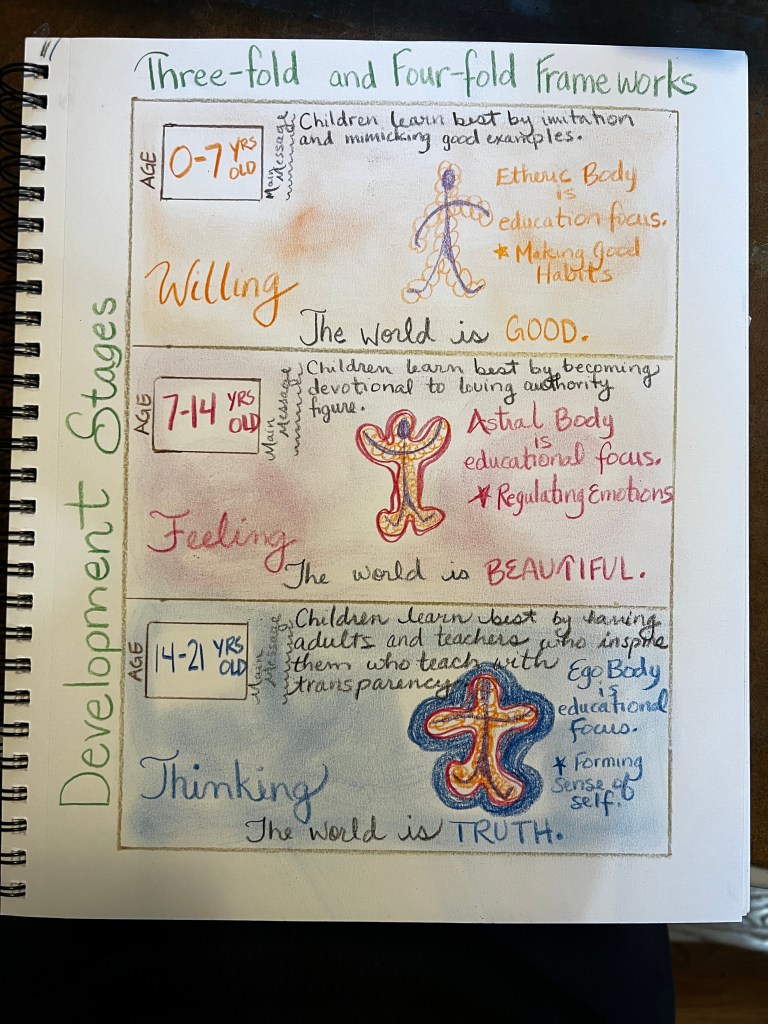 Three-fold and Four-fold Frameworks
Development Stages
AGE
0-7 YRS OLD
Main Message
Children learn best by imitation
and mimicking good examples.
Etheric Body
is
education focus.
* Making Good
Habits
Willing
The world is GOOD.
AGE
7-14 YRS OLD
Main Message
Children learn best by becoming
devotional to loving authority
figure.
Astral Body
is
educational focus.
* Regulating Emotions
Feeling
The world is BEAUTIFUL.
AGE
14-21 YRS OLD
Main Message
Children learn best by having
adults and teachers who inspire
them who teach with
transparency.
Ego Body
is
educational
focus.
* Forming
Sense of
self.
Thinking
The world is TRUTH.